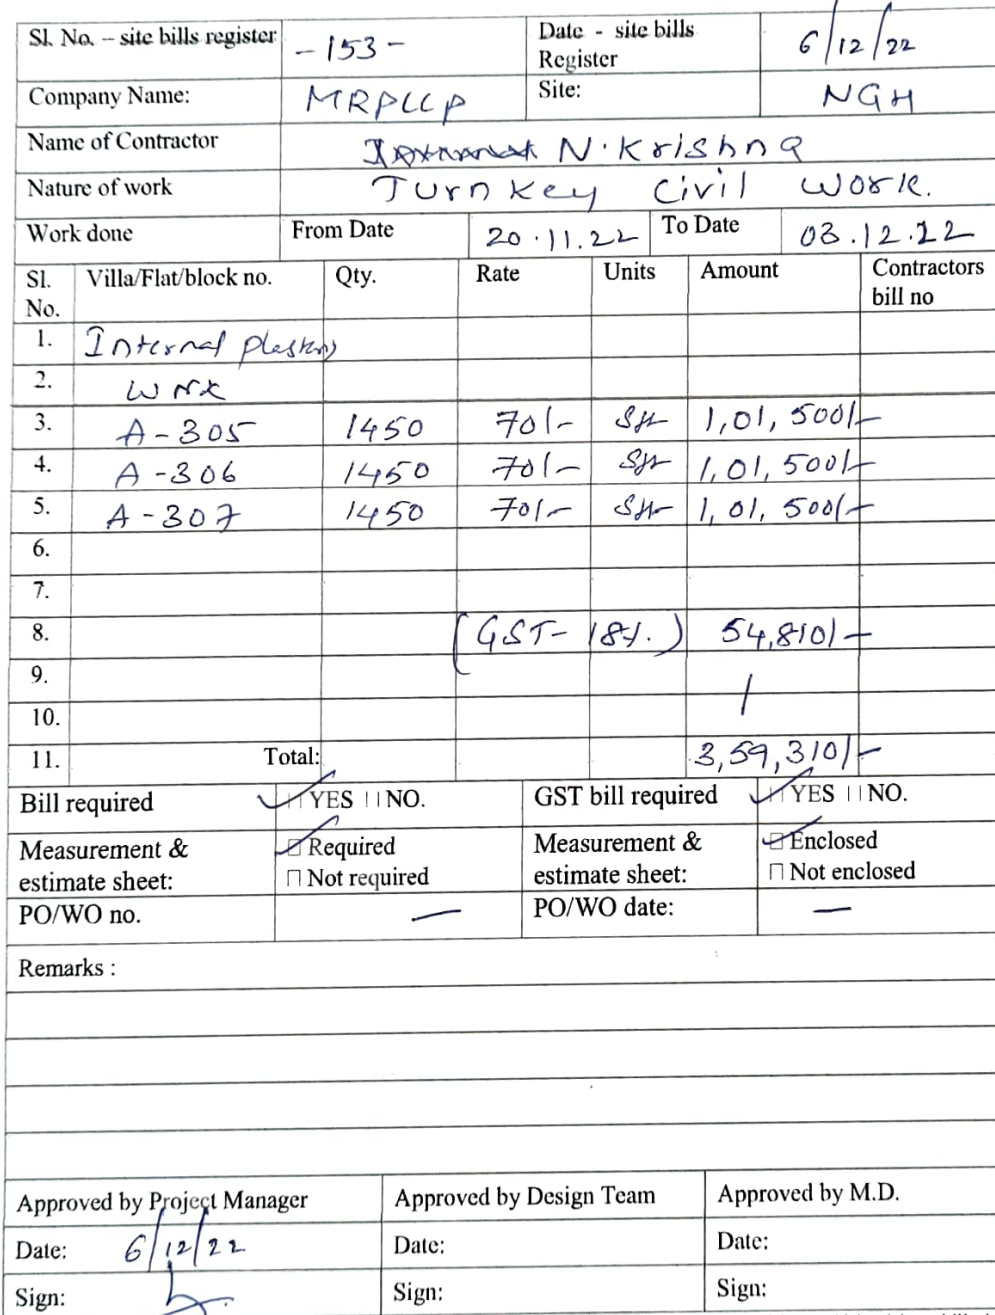 Sl. No. – site bills register -153- Date - site bills Register 6/12/22
Company Name: MRPLLP Site: NGH
Name of Contractor N. Krishna
Nature of work Turnkey Civil Work.
Work done From Date 20.11.22 To Date 03.12.22
Sl. No. Villa/Flat/block no. Qty. Rate Units Amount Contractors bill no
1. Internal
2. Work
3. A-305 1450 70/- Sft 1,01,500/-
4. A-306 1450 70/- Sft 1,01,500/-
5. A-307 1450 70/- Sft 1,01,500/-
6.
7.
8. (GST- 18%.) 54,810/-
9.
10.
11. Total: 3,59,310/-
Bill required YES NO. GST bill required YES NO.
Measurement & estimate sheet: Required Measurement & estimate sheet: Enclosed
Not required Not enclosed
PO/WO no. — PO/WO date: —
Remarks :
Approved by Project Manager Approved by Design Team Approved by M.D.
Date: 6/12/22 Date: Date:
Sign: Sign: Sign: